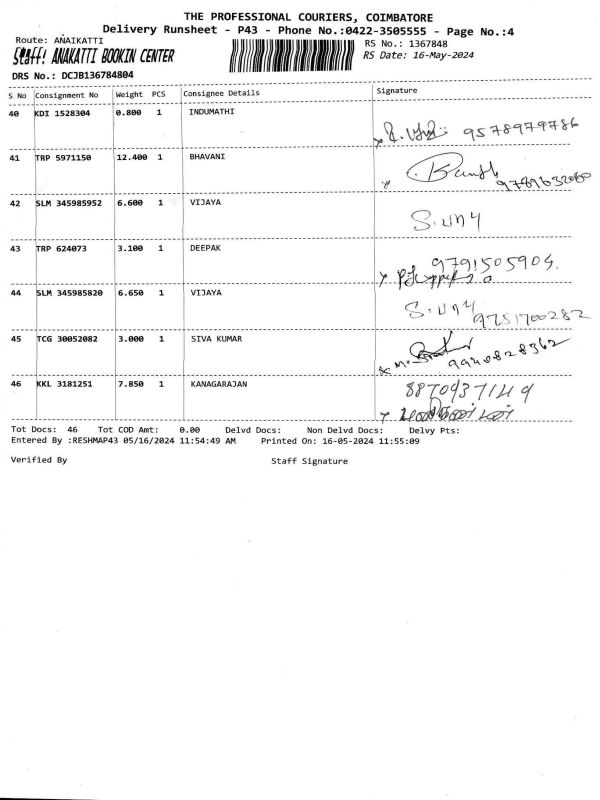 THE PROFESSIONAL COURIERS, COIMBATORE
Delivery Runsheet - P43 - Phone No.:0422-3505555 - Page No.:4
Route: ANAIKATTI RS No.: 1367848
Staff! ANAKATTI BOOKIN CENTER RS Date: 16-May-2024
DRS No.: DCJB136784804
S No Consignment No Weight PCS Consignee Details Signature
40 KDI 1528304 0.800 1 INDUMATHI
9578979786
41 TRP 5971150 12.400 1 BHAVANI
9789632080
42 SLM 345985952 6.600 1 VIJAYA
43 TRP 624073 3.100 1 DEEPAK
9791505904.
44 SLM 345985820 6.650 1 VIJAYA
9751700282
45 TCG 30052082 3.000 1 SIVA KUMAR
9940828362
46 KKL 3181251 7.850 1 KANAGARAJAN
8870937149
Tot Docs: 46 Tot COD Amt: 0.00 Delvd Docs: Non Delvd Docs: Delvy Pts:
Entered By :RESHMAP43 05/16/2024 11:54:49 AM Printed On: 16-05-2024 11:55:09
Verified By Staff Signature